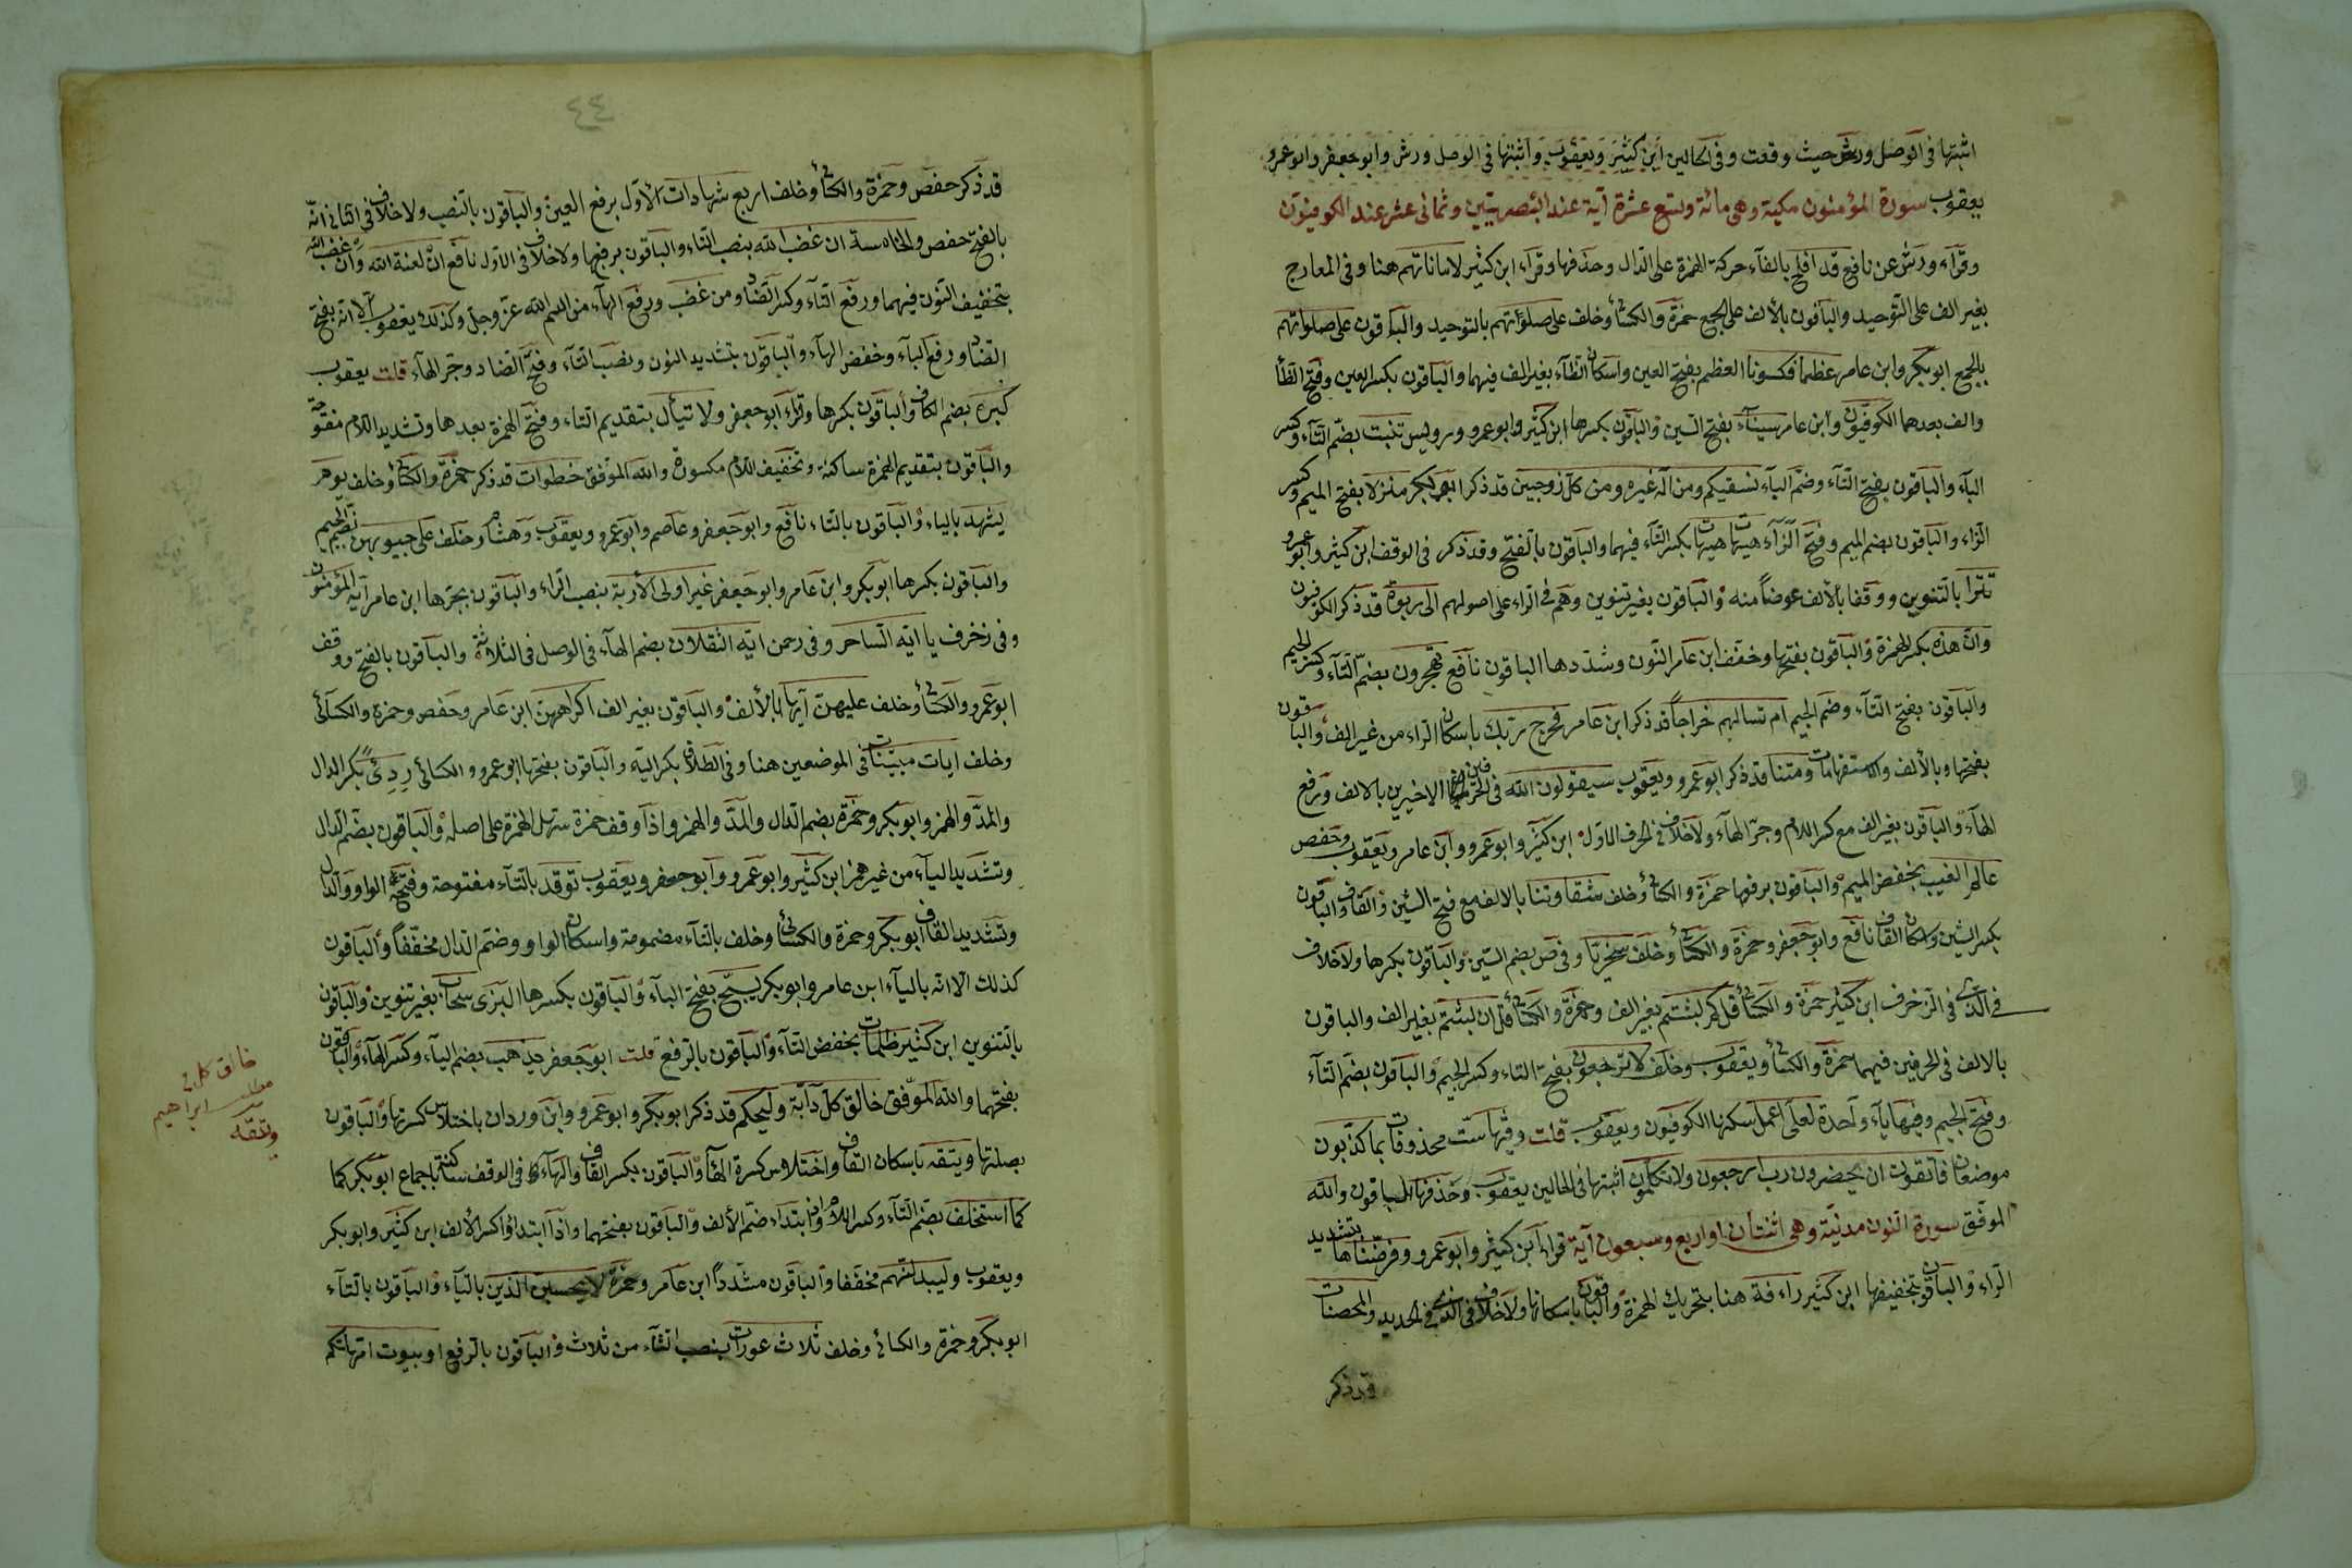 اثبتها في الوصل ورش حيث وقعت وفي الحالين ابن كثير ويعقوب واثبتها في الوصل ورش وابو جعفر وابو عمرو
يعقوب سورة المؤمنون مكية وهي مائة وتسع عشرة آية عند البصريين وثماني عشر عند الكوفيون
وقرآء ورش عن نافع قد افلح بالقآء حركة الهمزة على الدال وحذفها وقراء ابن كثير لاماناتهم هنا وفي المعارج
بغير الف على التوحيد والباقون بالألف على الجمع حمزة والكسائي وخلف على صلوٰتهم بالتوحيد والباقون على صلواتهم
بالجمع ابو بكر وابن عامر عظما فكسونا العظم بفتح العين واسكان الظآء بغير الف فيهما والباقون بكسر العين وفتح الظآ
والف بعدهما الكوفيون وابن عامر سينآء بفتح السين والباقون بكسرها ابن كثير وابو عمرو ورويس تنبت بضم التآء وكسر
البآء والباقون بفتح التآء وضم البآء نسقيكم ومن اله غيره ومن كل زوجين قد ذكر ابو بكر منزلا بفتح الميم وكسر
الزاء والباقون بضم الميم وفتح الزآء هيهات هيهات بكسر التآء فيهما والباقون بالفتح وقد ذكر في الوقف ابن كثير وابو عمرو
تترا بالتنوين ووقفا بالألف عوضاً منه والباقون بغير تنوين وهم في الراء على اصولهم الى ربوة قد ذكر الكوفيون
وانّ هذه بكسر الهمزة والباقون بفتحها وخفف ابن عامر النون وشددها الباقون نافع تهجرون بضم التآء وكسر الجيم
والباقون بفتح التآء وضم الجيم ام تسالهم خراجاً قد ذكر ابن عامر فخرج ربك باسكان الراء من غير الف والباقون
بفتحها وبالألف والاستفهامات ومتنا قد ذكر ابو عمرو ويعقوب سيقولون الله في الحرفين الاخيرين بالالف ورفع
الهآء والباقون بغير الف مع كسر اللام وجر الهآء ولا خلاف في الحرف الاول ابن كثير وابو عمرو وابن عامر ويعقوب وحفص
عالم الغيب بخفض الميم والباقون برفعها حمزة والكسائي وخلف شقاوتنا بالالف مع فتح الشين والقاف والباقون
بكسر الشين واسكان القاف نافع وابو جعفر وحمزة والكسائي وخلف سخريا وفي ص بضم السين والباقون بكسرها ولا خلاف
في الذي في الزخرف ابن كثير حمزة والكسائي قل كم لبثتم بغير الف وحمزة والكسائي قل ان لبثتم بغير الف والباقون
بالالف في الحرفين فيهما حمزة والكسائي ويعقوب وخلف لا ترجعون بفتح التاء وكسر الجيم والباقون بضم التآء
وفتح الجيم وفيها يآء واحدة لعلّي اعمل سكنها الكوفيون ويعقوب قلت وفيها ست محذوفات بما كذبون
موضعان فاتقون ان يحضرون رب ارجعون ولا تكلمون اثبتها في الحالين يعقوب وحذفها الباقون والله
الموفق سورة النون مدنيّة وهي اثنتان او اربع وسبعون آية قراء ابن كثير وابو عمرو وفرضناها بتشديد
الراء والباقون بتخفيفها ابن كثير راءفة هنا بتحريك الهمزة والباقون باسكانها ولا خلاف في الذي في الحديد والمحصنات
قد ذكر
٤٤
قد ذكر حفص وحمزة والكسائي وخلف اربع شهادات الاول برفع العين والباقون بالنصب ولا خلاف في الثاني انه
بالفتح حفص والخامسة ان غضب الله بنصب التاء والباقون برفعها ولا خلاف في الاول نافع ان لعنة الله وان غضب الله
بتخفيف النون فيهما ورفع التآء وكسر الضاد من غضب ورفع الهآء من اسم الله عز وجل وكذلك يعقوب الا انه بفتح
الضاد ورفع البآء وخفض الهآء والباقون بتشديد النون ونصب التآء وفتح الضاد وجر الهآء قلت يعقوب
كبره بضم الكاف والباقون بكسرها وقراء ابو جعفر ولا تيأل بتقديم التاء وفتح الهمزة بعدها وتشديد اللام مفتوحة
والباقون بتقديم الهمزة ساكنة وتخفيف اللام مكسورة والله الموفق خطوات قد ذكر حمزة والكسائي وخلف يوم
يشهد بالياء والباقون بالتاء نافع وابو جعفر وعاصم وابو عمرو ويعقوب وهشام وخلف على جيوبهن بضم الجيم
والباقون بكسرها ابو بكر وابن عامر وابو جعفر غير اولى الأربة بنصب الراء والباقون بجرها ابن عامر آيه المؤمنون
وفي زخرف يا ايه الساحر وفي رحمن ايه الثقلان بضم الهآء في الوصل في الثلاثة والباقون بالفتح ووقف
ابو عمرو والكسائي وخلف عليهن آيها بالألف والباقون بغير الف اكراههن ابن عامر وحفص وحمزة والكسآئي
وخلف ايات مبيّنات في الموضعين هنا وفي الطلاق بكسر اليه والباقون بفتحها ابو عمرو والكسائي دِرِئٌ بكسر الدال
والمدّ والهمز وابو بكر وحمزة بضم الدال والمدّ والهمز واذا وقف حمزة سهل الهمزة على اصله والباقون بضم الدال
وتشديد اليآء من غير همز ابن كثير وابو عمرو وابو جعفر ويعقوب توقد بالتآء مفتوحة وفتح الواو والدال
وتشديد القاف ابو بكر وحمزة والكسائي وخلف بالتآء مضمومة واسكان الواو وضم الدال مخففاً والباقون
كذلك الا انه باليآء ابن عامر وابو بكر يسبّح بفتح البآء والباقون بكسرها البزى سحاب بغير تنوين والباقون
بالتنوين ابن كثير ظلمات بخفض التآء والباقون بالرفع قلت ابو جعفر يذهب بضم اليآء وكسر الهآء والباقون
بفتحهما والله الموفق خالق كل دآبّة وليحكم قد ذكر ابو بكر وابو عمرو وابن وردان باختلاس كسرتها والباقون
بصلتها ويتقه باسكان القاف واختلاس كسرة الهآ والباقون بكسر القاف والهآء في الوقف ساكنة باجماع ابو بكر كما
كما استخلف بضم التآء وكسر اللام وان ابتداء ضم الألف والباقون بفتحهما واذا ابتدؤا كسر الألف ابن كثير وابو بكر
ويعقوب وليبدلنهم مخففا والباقون مشدداً ابن عامر وحمزة لا يحسبن الذين باليآء والباقون بالتآء
ابو بكر وحمزة والكسائي وخلف ثلاث عورات بنصب الثآء من ثلاث والباقون بالرفع او بيوت امهاتكم
خالق كل في
مطلب ابراهيم
ويتقه